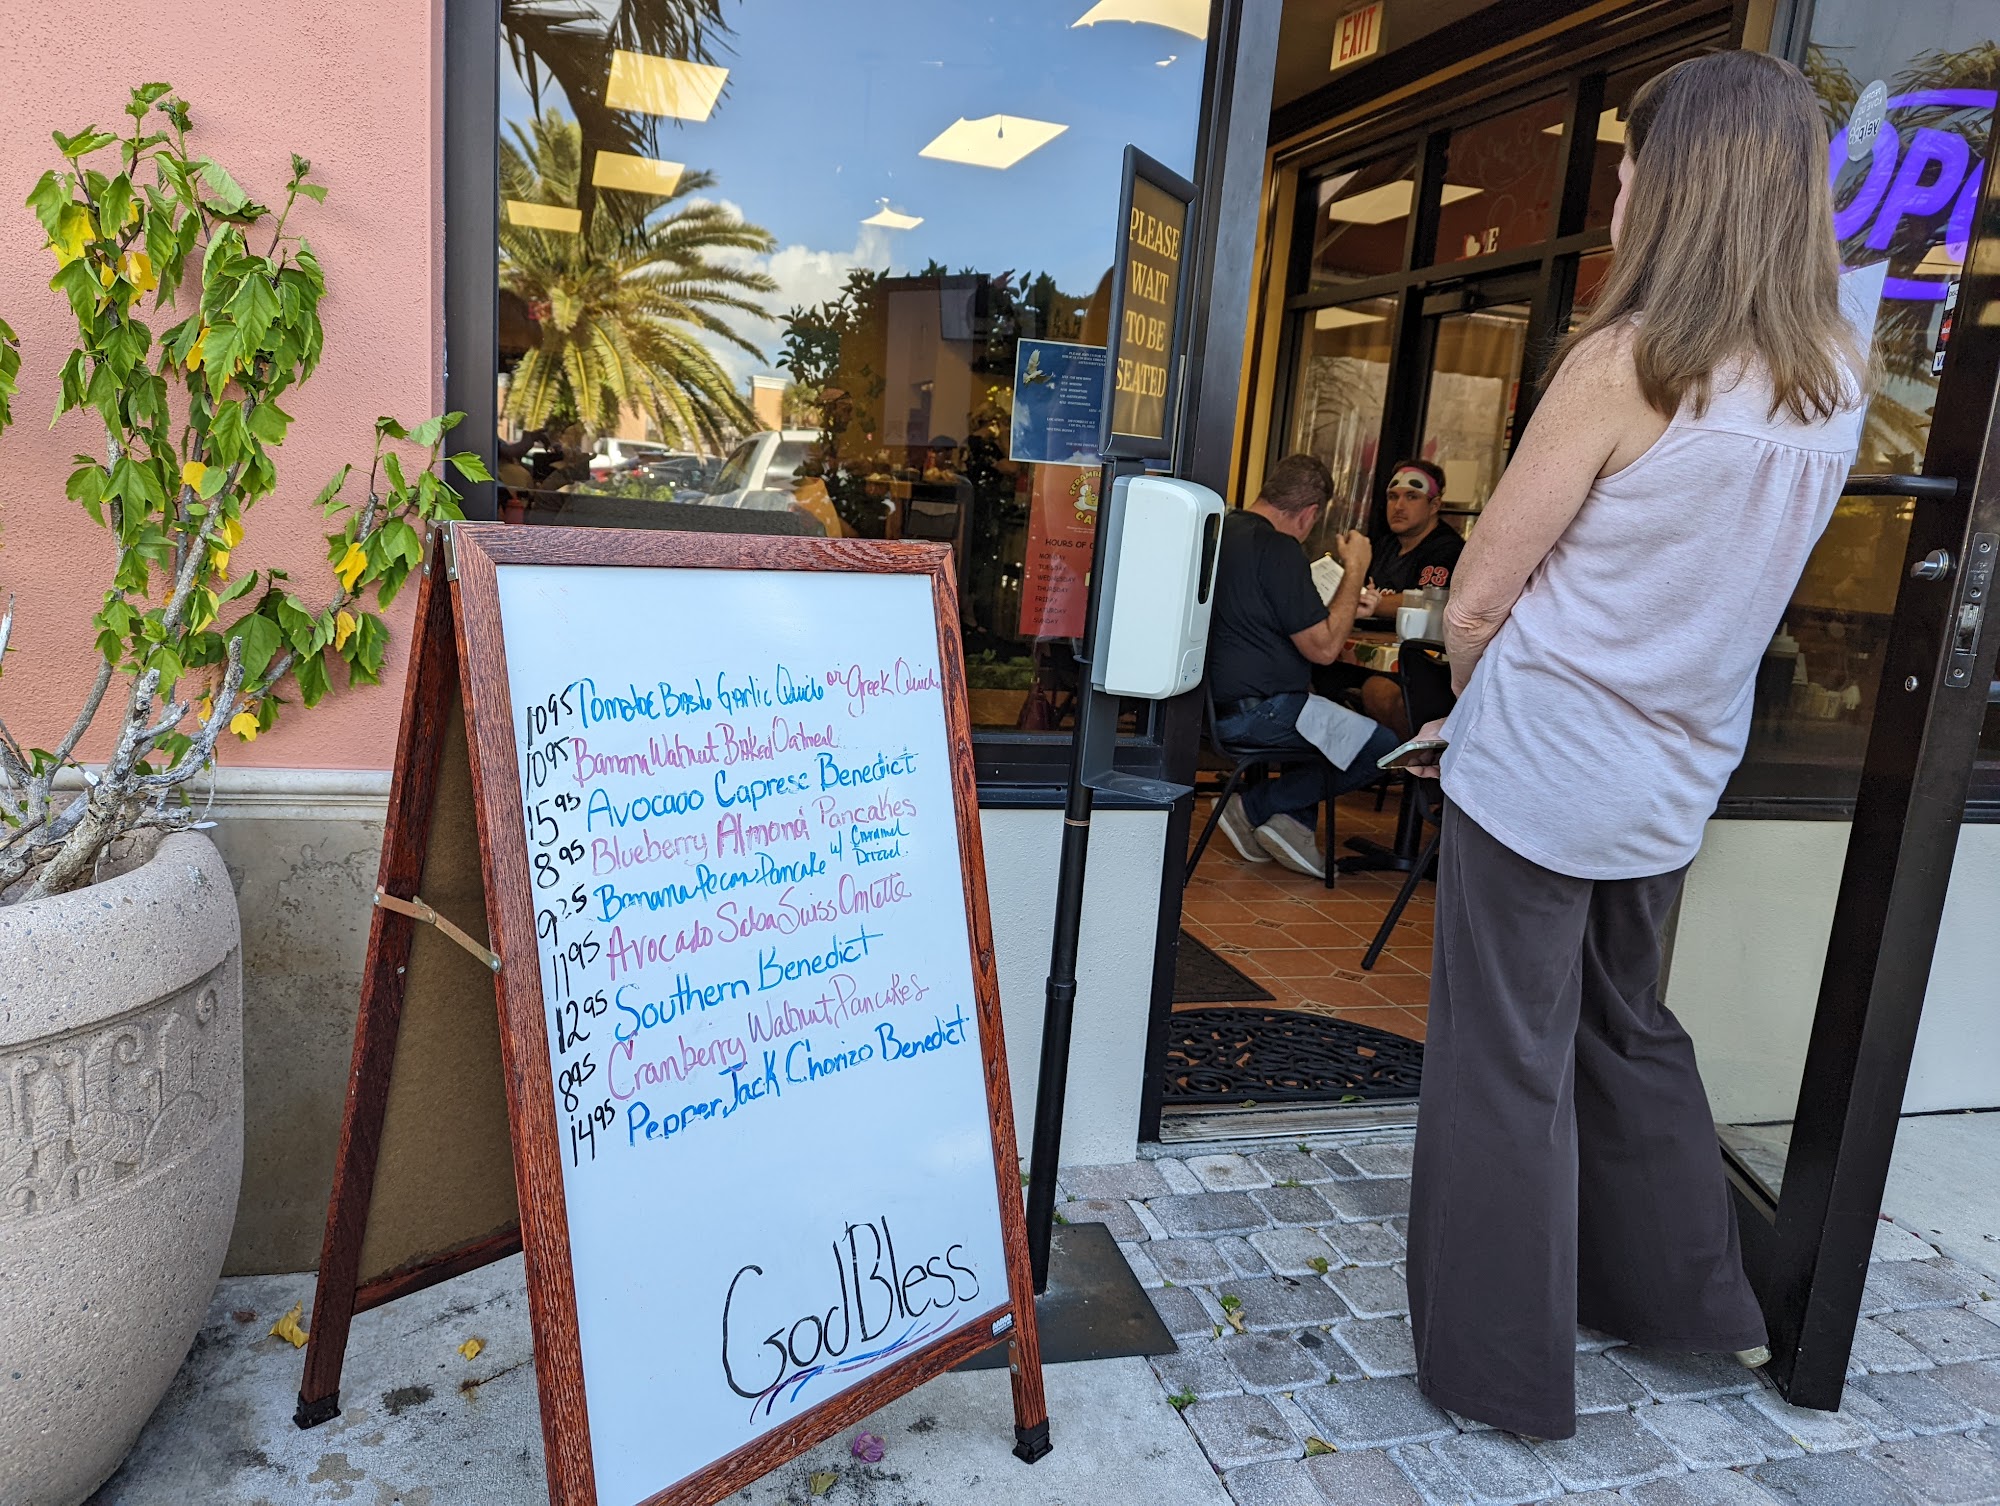 EXIT
PLEASE
WAIT
TO BE
SEATED
OP
yelp
HOURS OF
MONDAY
TUESDAY
WEDNESDAY
THURSDAY
FRIDAY
SATURDAY
SUNDAY
93
10 95 Tomatoe Basil Garlic Quiche or Greek Quiche
10 95 Banana Walnut Baked Oatmeal
15 95 Avocado Caprese Benedict
8 95 Blueberry Almond Pancakes
9 25 Banana Pecan Pancake w/ Caramel
Drizzel
11 95 Avocado Salsa Swiss Omlette
12 95 Southern Benedict
8 95 Cranberry Walnut Pancakes
14 95 Pepper Jack Chorizo Benedict
God Bless